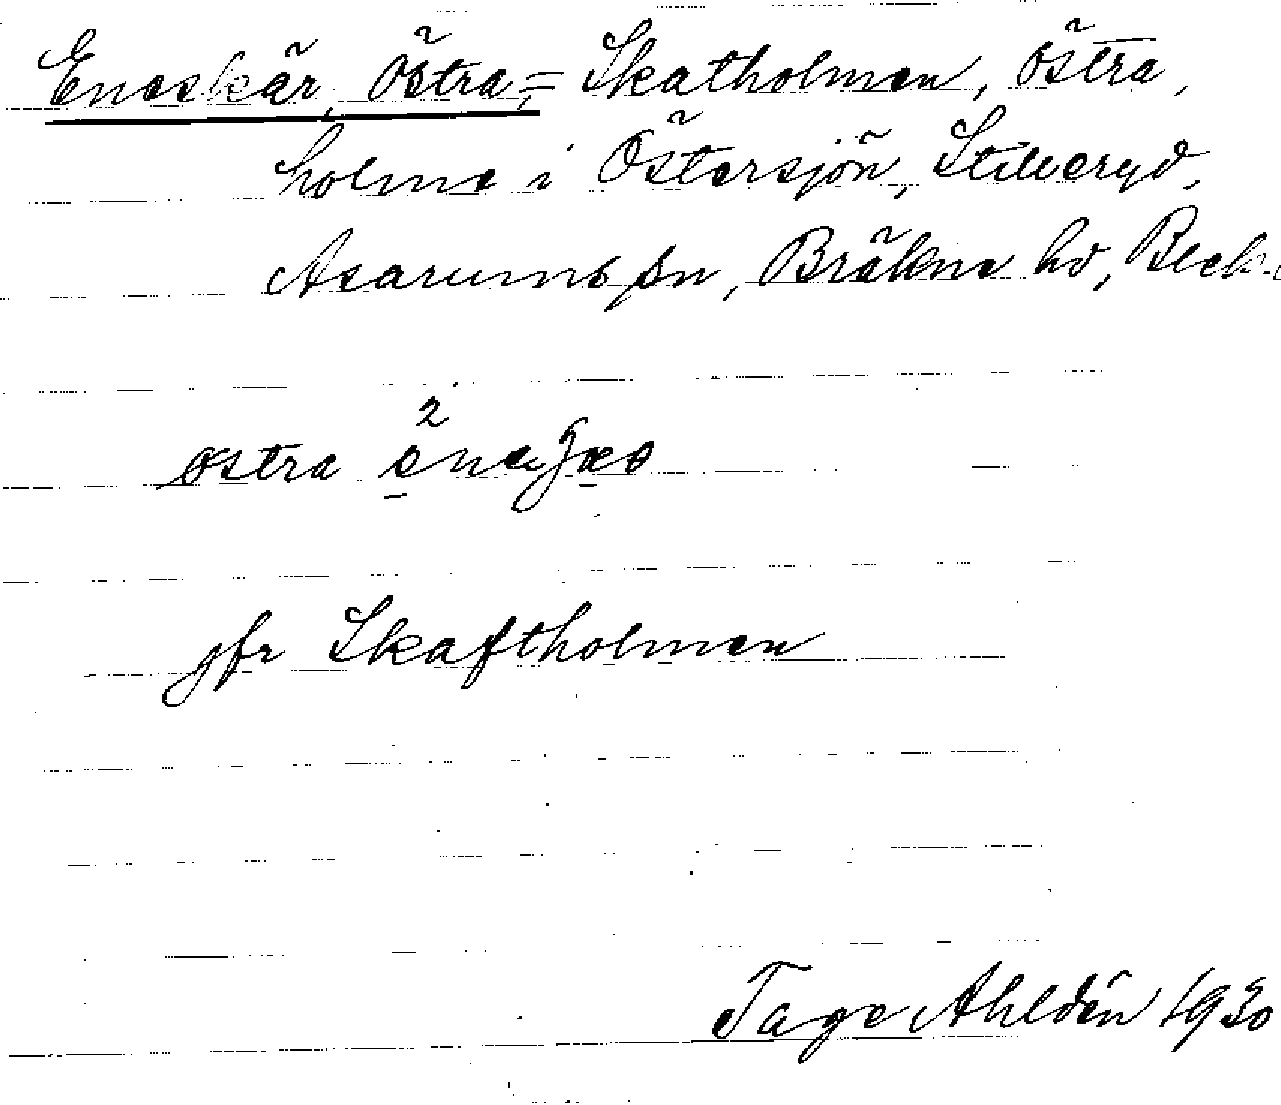 Eneskär, Östra, = Skatholmen, Östra,
holme i Östersjön, Stilleryd,
Asarums sn, Bräkne hd, Blek.
östra
jfr Skaftholmen
Tage Ahldén 1930